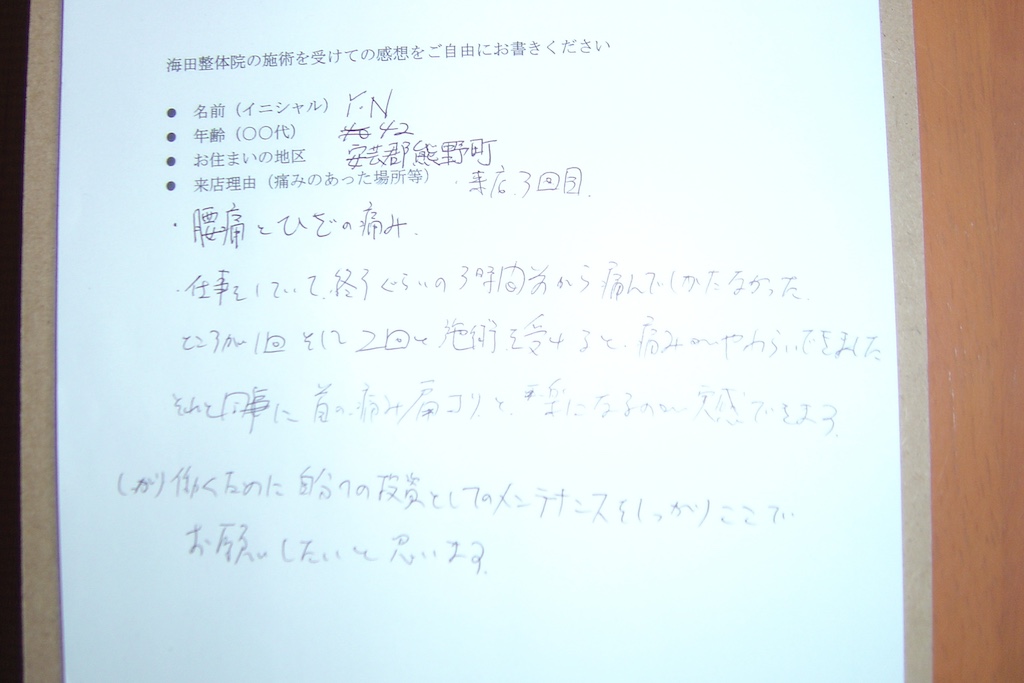 海田整体院の施術を受けての感想をご自由にお書きください
● 名前（イニシャル） Y・N
● 年齢（〇〇代） 42
● お住まいの地区 安芸郡熊野町
● 来店理由（痛みのあった場所等）・来店3回目.
・腰痛とひざの痛み.
・仕事をしていて、終了ぐらいの3時間前から痛んでしかたなかった.
ところが1回そして2回と施術を受けると、痛みがやわらいできました
それと同事に首の痛み肩コリと楽になるのが実感できます.
しっかり働くために自分への投資としてのメンテナンスをしっかりここで
お願いしたいと思います.